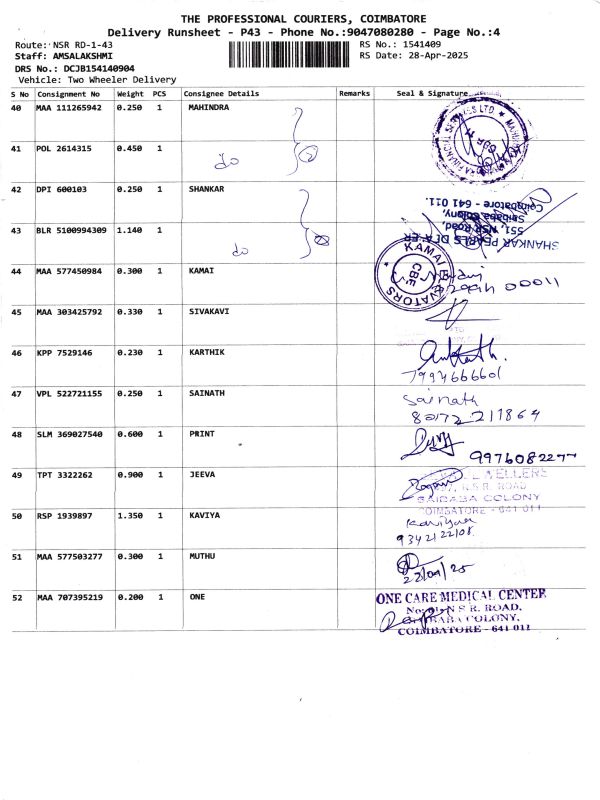 THE PROFESSIONAL COURIERS, COIMBATORE
Delivery Runsheet - P43 - Phone No.:9047080280 - Page No.:4
Route: NSR RD-1-43 RS No.: 1541409
Staff: AMSALAKSHMI RS Date: 28-Apr-2025
DRS No.: DCJB154140904
Vehicle: Two Wheeler Delivery
S No Consignment No Weight PCS Consignee Details Remarks Seal & Signature
40 MAA 111265942 0.250 1 MAHINDRA
41 POL 2614315 0.450 1 do
42 DPI 600103 0.250 1 SHANKAR
Coimbatore - 641 011.
Saibaba Colony,
551, NSR Road,
43 BLR 5100994309 1.140 1 do
SHANKAR PEARLS
44 MAA 577450984 0.300 1 KAMAI
KAMAI
CBE
45 MAA 303425792 0.330 1 SIVAKAVI
46 KPP 7529146 0.230 1 KARTHIK
7994666601
47 VPL 522721155 0.250 1 SAINATH Sainath
80172 211864
48 SLM 369027540 0.600 1 PRINT
9976082277
49 TPT 3322262 0.900 1 JEEVA
N.S.R. ROAD
SAIBABA COLONY
COIMBATORE - 641 011
50 RSP 1939897 1.350 1 KAVIYA Kaviyaa
9342122108
51 MAA 577503277 0.300 1 MUTHU
22/04/25
52 MAA 707395219 0.200 1 ONE ONE CARE MEDICAL CENTER
N S R. ROAD,
SAIBABA COLONY,
COIMBATORE - 641 011